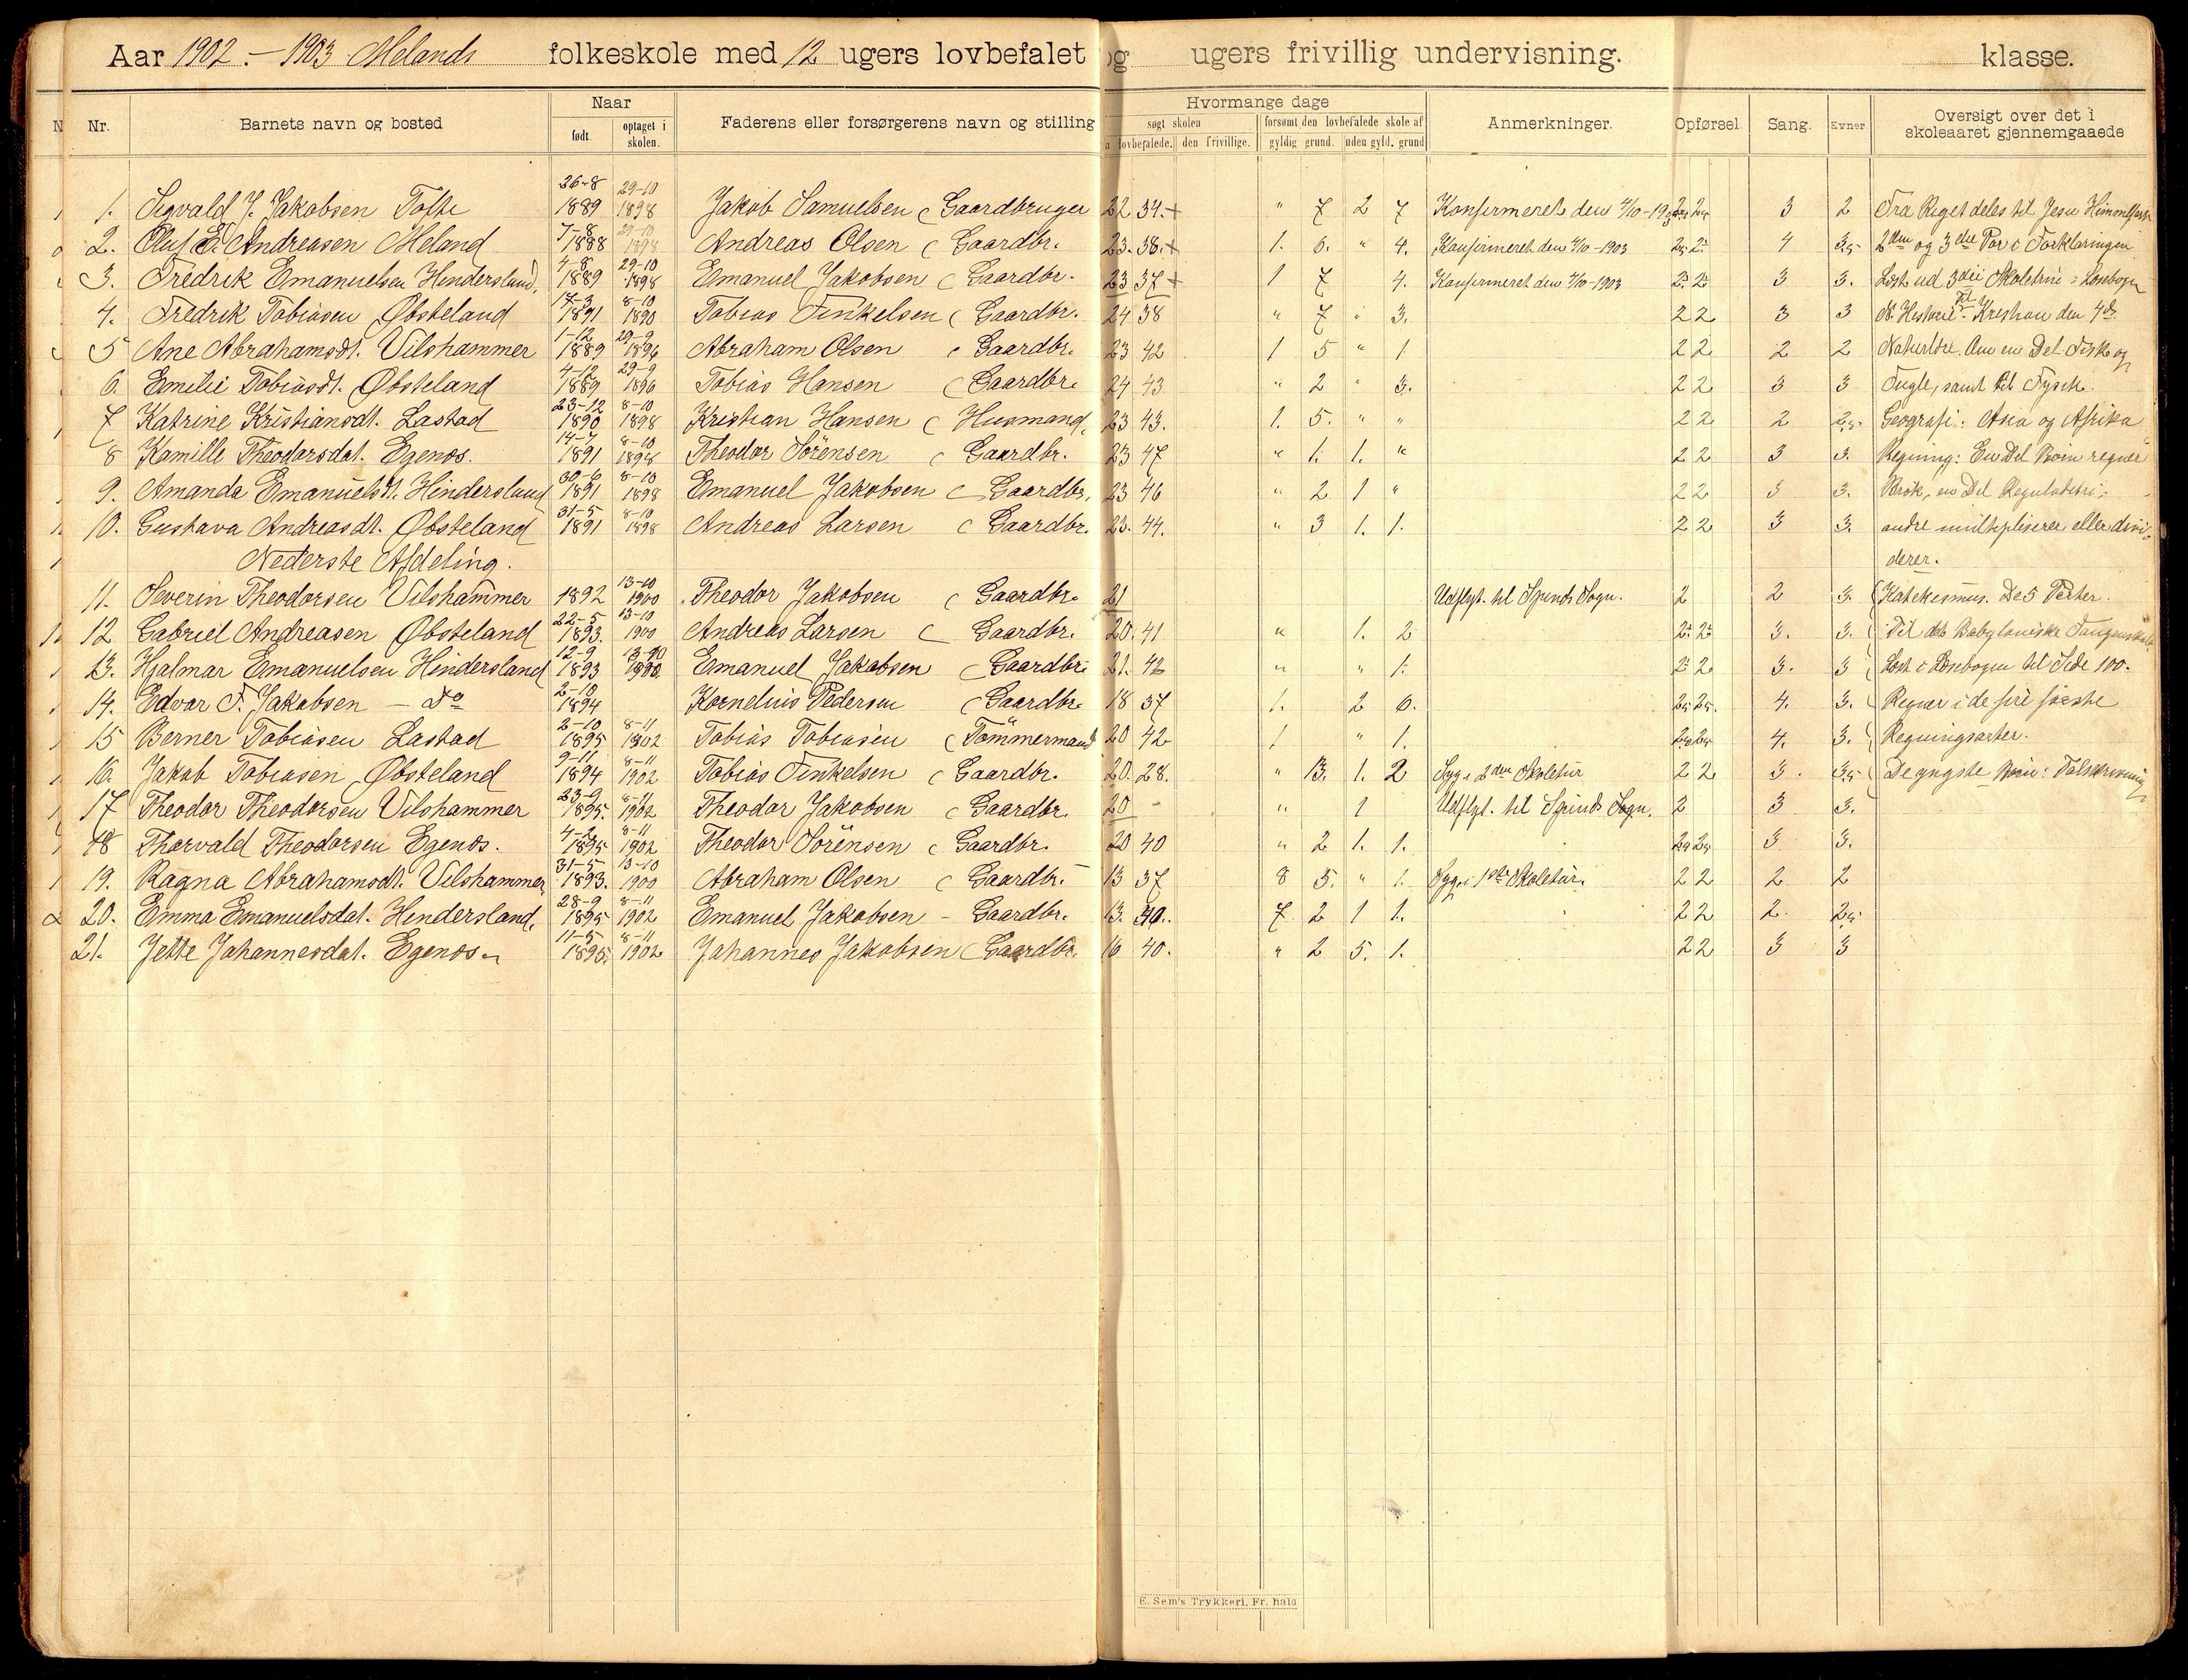 Aar 1902. – 1903 Melands folkeskole med 12 ugers lovbefalet og ugers frivillig undervisning. klasse.
Nr. Barnets navn og bosted Naar født. optaget i skolen. Faderens eller forsørgerens navn og stilling Hvormange dage søgt skolen lovbefalede. den frivillige. forsømt den lovbefalede skole af gyldig grund. uden gyld. grund Anmerkninger. Opførsel Sang. Evner Oversigt over det i skoleaaret gjennemgaaede
1. Sigvald J. Jakobsen Tofte 26-8 1889 29-10 1898 Jakob Samuelsen Gaardbruger 22 34.+ " 7 2 7 Konfirmeret den 4/10-1903 3 2 Fra Riget deles til Jesu Himmelfart
2. Oluf E. Andreasen Meland 7-8 1888 29-10 1898 Andreas Olsen Gaardbr. 23. 38.+ 1. 6. " 4. Konfirmeret den 4/10-1903 4 2den og 3die Par i Forklaringen
3. Fredrik Emanuelsen Hindersland, 4-8 1889 29-10 1898 Emanuel Jakobsen Gaardbr. 23 37+ 1 7 4. Konfirmeret den 4/10-1903 3 3. Læst ud 3die Skoletrin i Læsebogen
4. Fredrik Tobiasen Øbsteland 17-3 1891 8-10 1890 Tobias Finkelsen Gaardbr. 24 38 " 7 " 3. 2 2 3 3 N. Historie til Kristian den 4de
5 Ane Abrahamsdt. Vilshammer 1-12 1889 29-9 1896 Abraham Olsen Gaardbr. 23 42 1 5 " 1 2 2 2 2 Naturlære. Om en Del Fisk og
6. Emilie Tobiasdt. Øbsteland 4-12 1889 29-9 1896 Tobias Hansen Gaardbr. 24 43 " 2 " 3. 2 2 3 3 Fugle, samt lit Fysik.
7 Katrine Kristiansdt. Lastad 23-12 1890 8-10 1898 Kristian Hansen Husmand, 23 43. 1. 5. " " 2 2 2 Geografi: Asia og Afrika
8 Kamille Theodorsdat. Egenæs. 14-7 1891 8-10 1898 Theodor Sörensen Gaardbr. 23 47 " 1. 1. " 2 2 3 3. Regning: En Del Börn regner
9. Amanda Emanuelsdt. Hindersland 30-6 1891 8-10 1898 Emanuel Jakobsen Gaardbr. 23 46 " 2 1 " 2 2 3 3. Brök, en Del Reguladetri,
10. Gustava Andreasdt. Øbsteland 31-5 1891 8-10 1898 Andreas Larsen Gaardbr. 23. 44. " 3 1. 1. 2 2 3 3. andre multipliserer eller divi-
Nederste Afdeling. derer.
11. Severin Theodorsen Vilshammer 1892 13-10 1900 Theodor Jakobsen Gaardbr. 21 Udflyt. til Spinds Sogn. 2 2 3. Katekismus. De 5 Parter.
12 Gabriel Andreasen Øbsteland 22-5 1893. 13-10 1900 Andreas Larsen Gaardbr. 20. 41 " 1. 2 3. 3. Til det Babyloniske Fangenskab
13. Hjalmar Emanuelsen Hindersland 12-9 1893 13-10 1900 Emanuel Jakobsen Gaardbr. 21. 42 " " 1. 3. 3 Læst i Læsebogen til Side 100.
14. Edvar F. Jakobsen – Do 2-10 1894 Kornelius Pedersen Gaardbr. 18 37 1. 2 6. 4. 3. Regner i de fire förste
15 Berner Tobiasen Lastad 2-10 1895 8-11 1902 Tobias Tobiasen Tömmermand 20 42 1 " 1. 4. 3. Regningsarter.
16. Jakob Tobiasen Øbsteland 9-11 1894 8-11 1902 Tobias Finkelsen Gaardbr. 20. 28. " 13. 1. 2 Syg i 2den Skoletur 2 2 3. De yngste Börn: Talskrivning
17 Theodor Theodorsen Vilshammer 23-9 1895. 8-11 1902 Theodor Jakobsen Gaardbr. 20 " 1 Udflyt. til Spinds Sogn. 2 3 3.
18 Thorvald Theodorsen Egenæs. 4-2 1895 8-11 1902 Theodor Sörensen Gaardbr. 20 40 " 2 1. 1. 3 3.
19. Ragna Abrahamsdt. Vilshammer 31-5 1893. 13-10 1900 Abraham Olsen Gaardbr. 13 37 8 5. " 1. Syg i 1ste Skoletur. 2 2 2 2
20. Emma Emanuelsdat. Hendersland, 28-9 1895 8-11 1902 Emanuel Jakobsen – Gaardbr. 13. 40. 7 2 1 1. 2 2 2.
21. Jette Johannesdat. Egenæs 11-5 1895. 8-11 1902 Johannes Jakobsen Gaardbr. 16 40. " 2 5. 1. 2 2 3 3
E. Sem's Trykkeri, Fr. hald